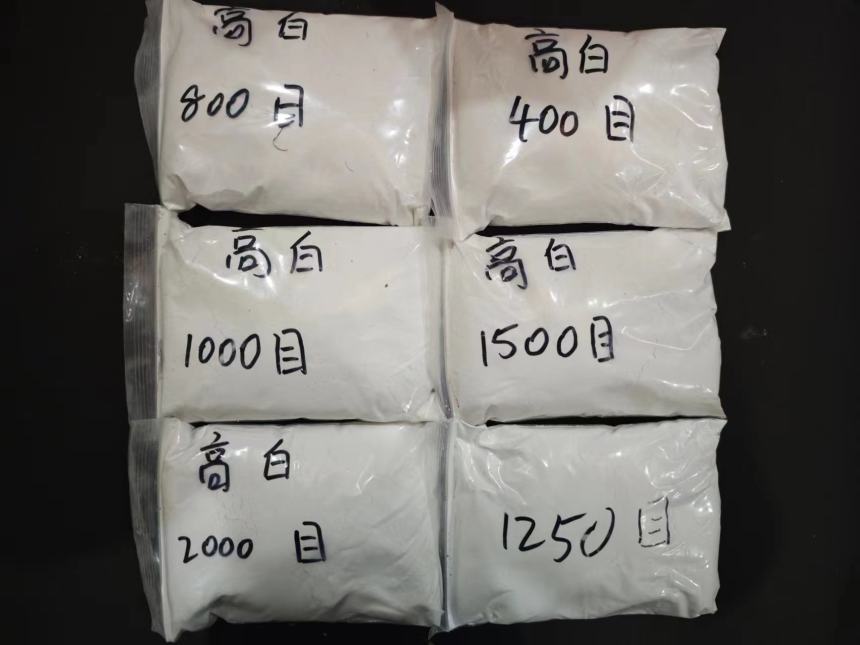 高白
800目
高白
400目
高白
1000目
高白
1500目
高白
2000目
1250目